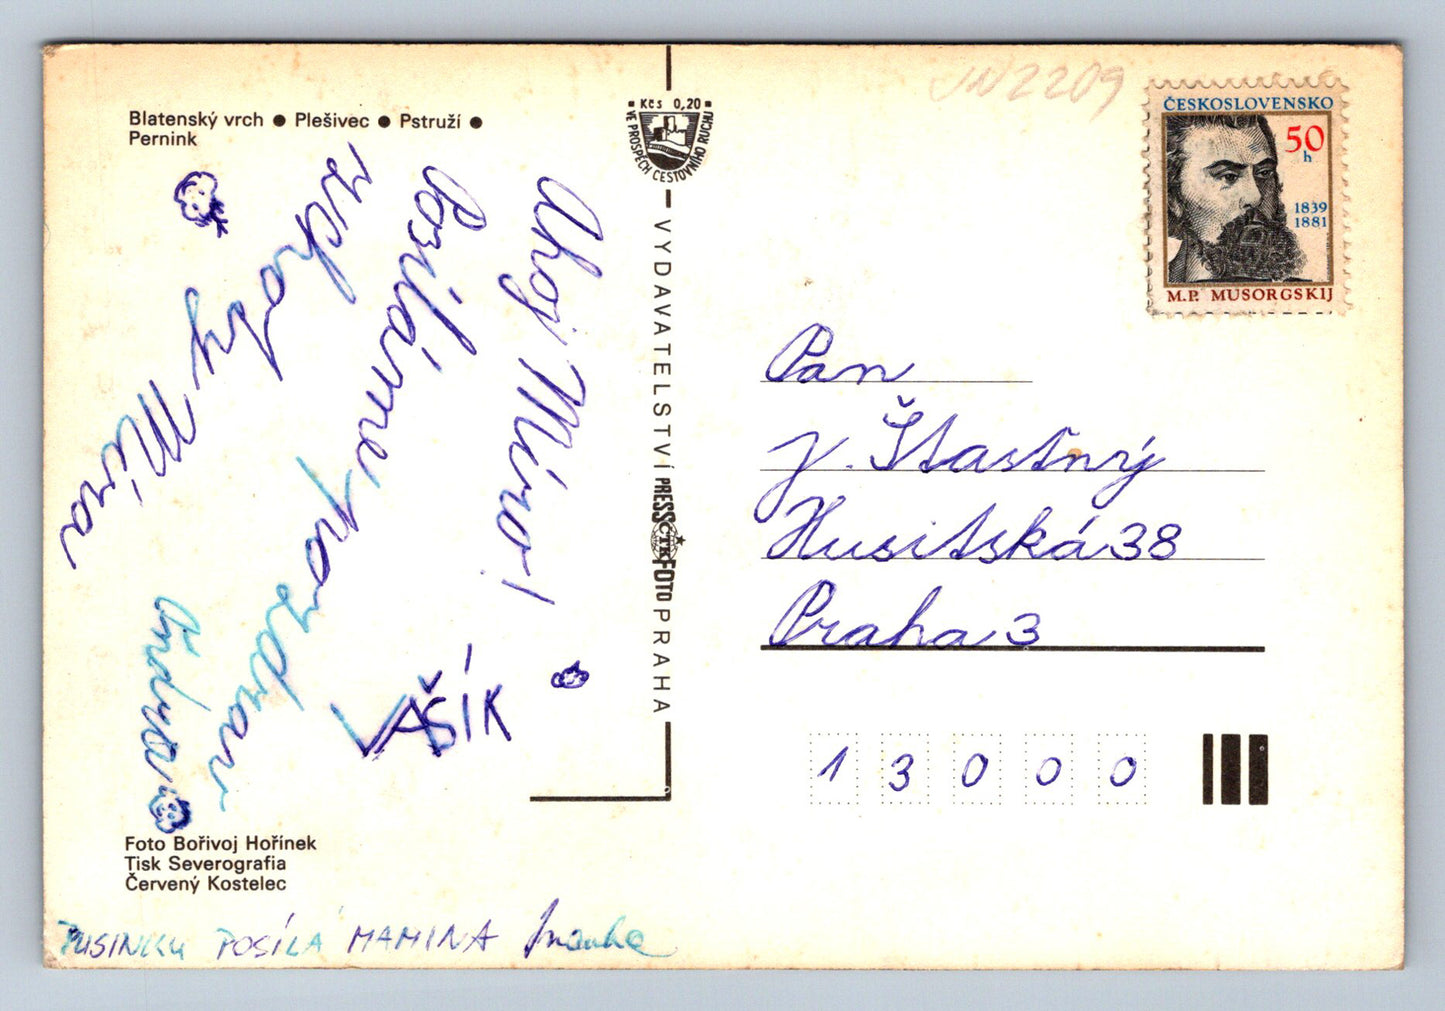 Blatenský vrch ● Plešivec ● Pstruží ●
Pernink
Ahoj Míro!
Posíláme pozdrav
z chaty Míra
Ondra
VAŠÍK
Foto Bořivoj Hořínek
Tisk Severografia
Červený Kostelec
PUSINKU POSÍLÁ MAMINA
Kčs 0,20
VE PROSPĚCH CESTOVNÍHO RUCHU
VYDAVATELSTVÍ PRESSFOTO PRAHA
ČTK
2209
ČESKOSLOVENSKO
50
h
1839
1881
M.P. MUSORGSKIJ
Pan
J. Šťastný
Husitská 38
Praha 3
1 3 0 0 0